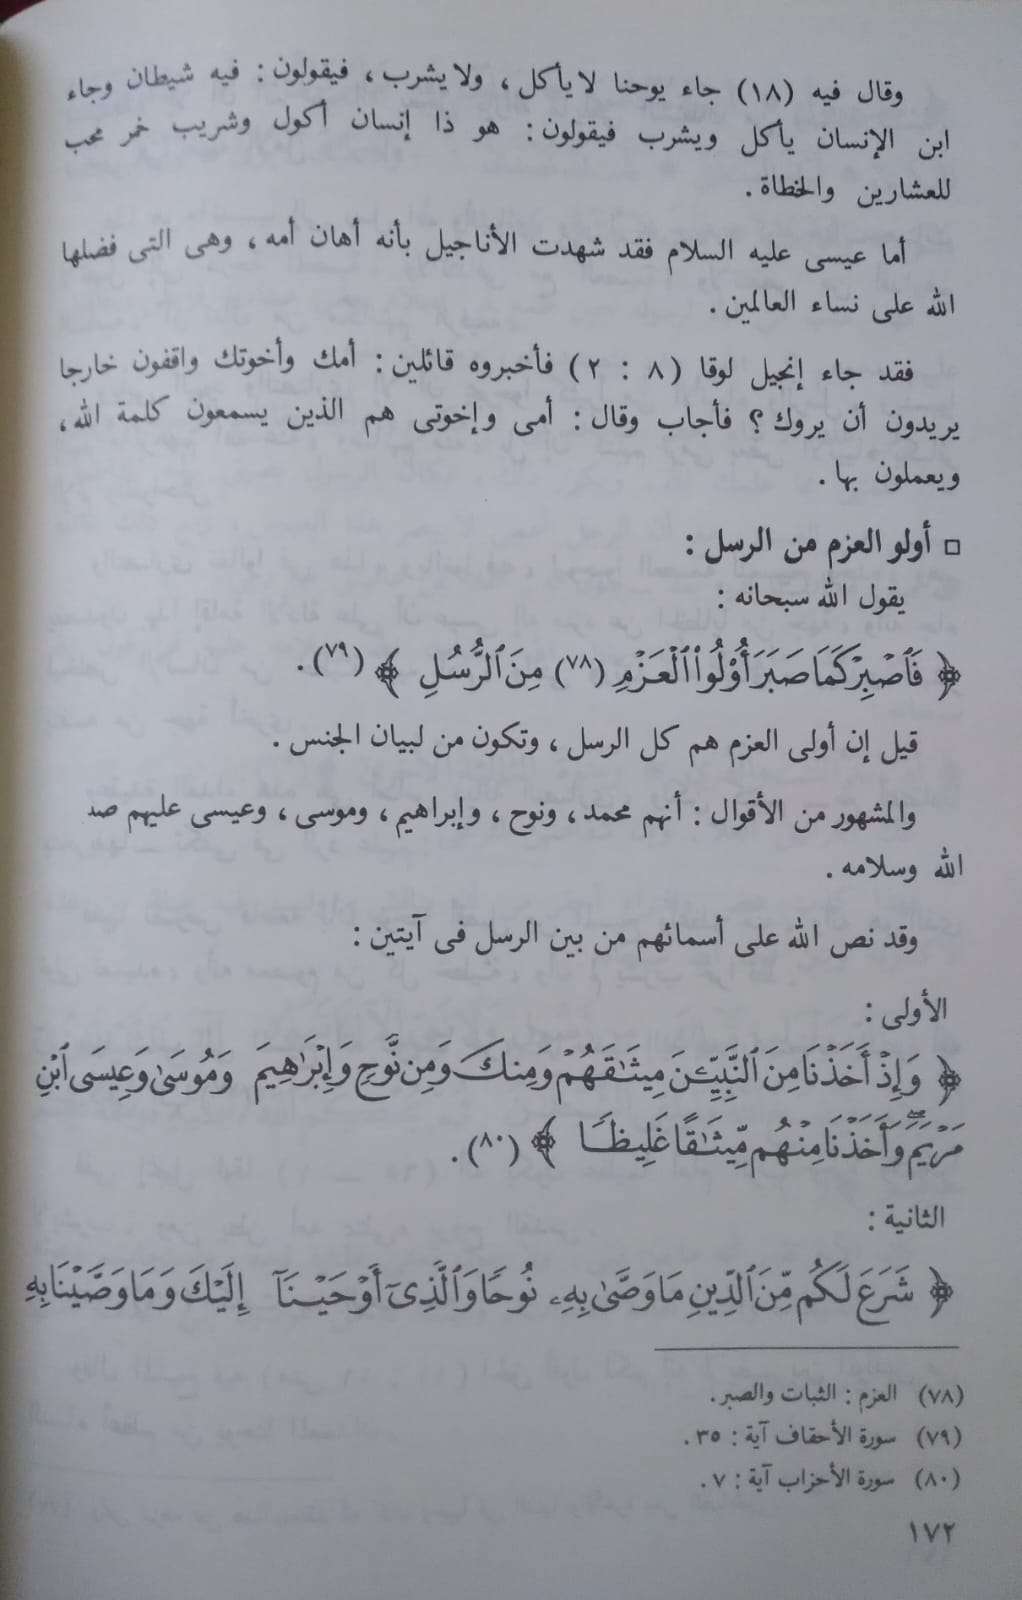 وقال فيه (١٨) جاء يوحنا لا يأكل، ولا يشرب، فيقولون: فيه شيطان وجاء
ابن الإنسان يأكل ويشرب فيقولون: هو ذا إنسان أكول وشريب خمر محب
للعشارين والخطاة.
أما عيسى عليه السلام فقد شهدت الأناجيل بأنه أهان أمه، وهى التى فضلها
الله على نساء العالمين.
فقد جاء إنجيل لوقا (٨ : ٢) فأخبروه قائلين: أمك وأخوتك واقفون خارجا
يريدون أن يروك؟ فأجاب وقال: أمى وإخوتى هم الذين يسمعون كلمة الله،
ويعملون بها.
□ أولو العزم من الرسل:
يقول الله سبحانه:
﴿ فَٱصۡبِرۡ كَمَا صَبَرَ أُوْلُواْ ٱلۡعَزۡمِ (٧٨) مِنَ ٱلرُّسُلِ ﴾ (٧٩).
قيل إن أولى العزم هم كل الرسل، وتكون من لبيان الجنس.
والمشهور من الأقوال: أنهم محمد، ونوح، وإبراهيم، وموسى، وعيسى عليهم صد
الله وسلامه.
وقد نص الله على أسمائهم من بين الرسل فى آيتين:
الأولى:
﴿ وَإِذۡ أَخَذۡنَا مِنَ ٱلنَّبِيِّـۧنَ مِيثَٰقَهُمۡ وَمِنكَ وَمِن نُّوحٖ وَإِبۡرَٰهِيمَ وَمُوسَىٰ وَعِيسَى ٱبۡنِ
مَرۡيَمَۖ وَأَخَذۡنَا مِنۡهُم مِّيثَٰقًا غَلِيظٗا ﴾ (٨٠).
الثانية:
﴿ شَرَعَ لَكُم مِّنَ ٱلدِّينِ مَا وَصَّىٰ بِهِۦ نُوحٗا وَٱلَّذِىٓ أَوۡحَيۡنَآ إِلَيۡكَ وَمَا وَصَّيۡنَا بِهِۦ
(٧٨) العزم: الثبات والصبر.
(٧٩) سورة الأحقاف آية: ٣٥.
(٨٠) سورة الأحزاب آية: ٧.
١٧٢